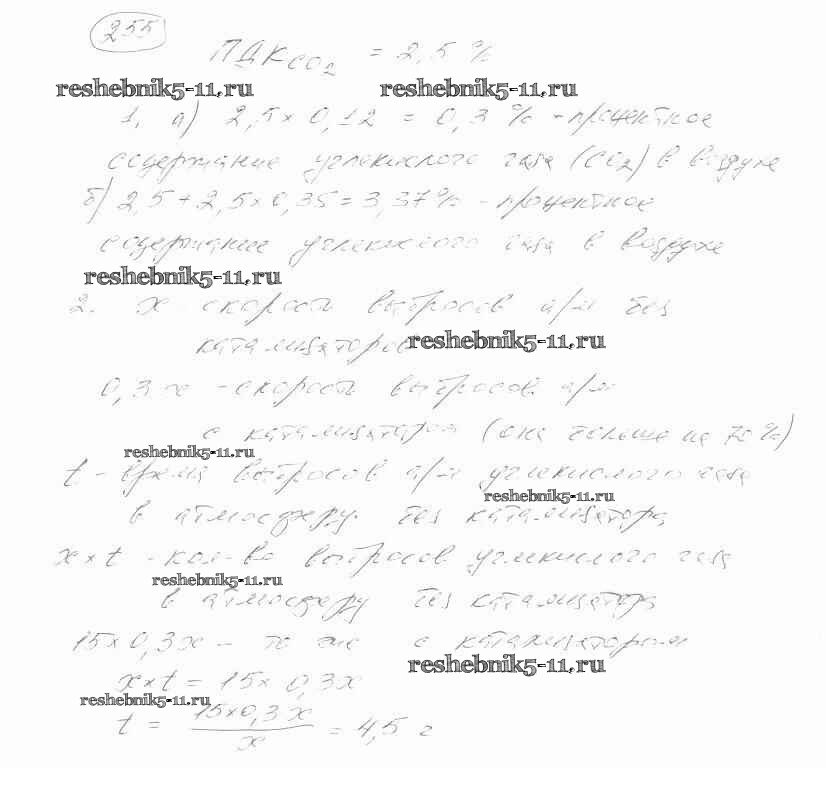 255
ПДК CO2 = 2,5 %
reshebnik5-11.ru reshebnik5-11.ru
1. а) 2,5 × 0,12 = 0,3 % - процентное
содержание углекислого газа (CO2) в воздухе
б) 2,5 + 2,5 × 0,35 = 3,37 % - процентное
содержание углекислого газа в воздухе
reshebnik5-11.ru
2. x - скорость выбросов а/м без
катализаторов reshebnik5-11.ru
0,3 x - скорость выбросов а/м
с катализатором (она больше на 70 %)
reshebnik5-11.ru
t - время выбросов а/м углекислого газа
reshebnik5-11.ru
в атмосферу без катализатора
x × t - кол-во выбросов углекислого газа
reshebnik5-11.ru
в атмосферу без катализатора
15 × 0,3 x - то же с катализатором
reshebnik5-11.ru
x × t = 15 × 0,3 x
reshebnik5-11.ru
t = 15 × 0,3 x / x = 4,5 г